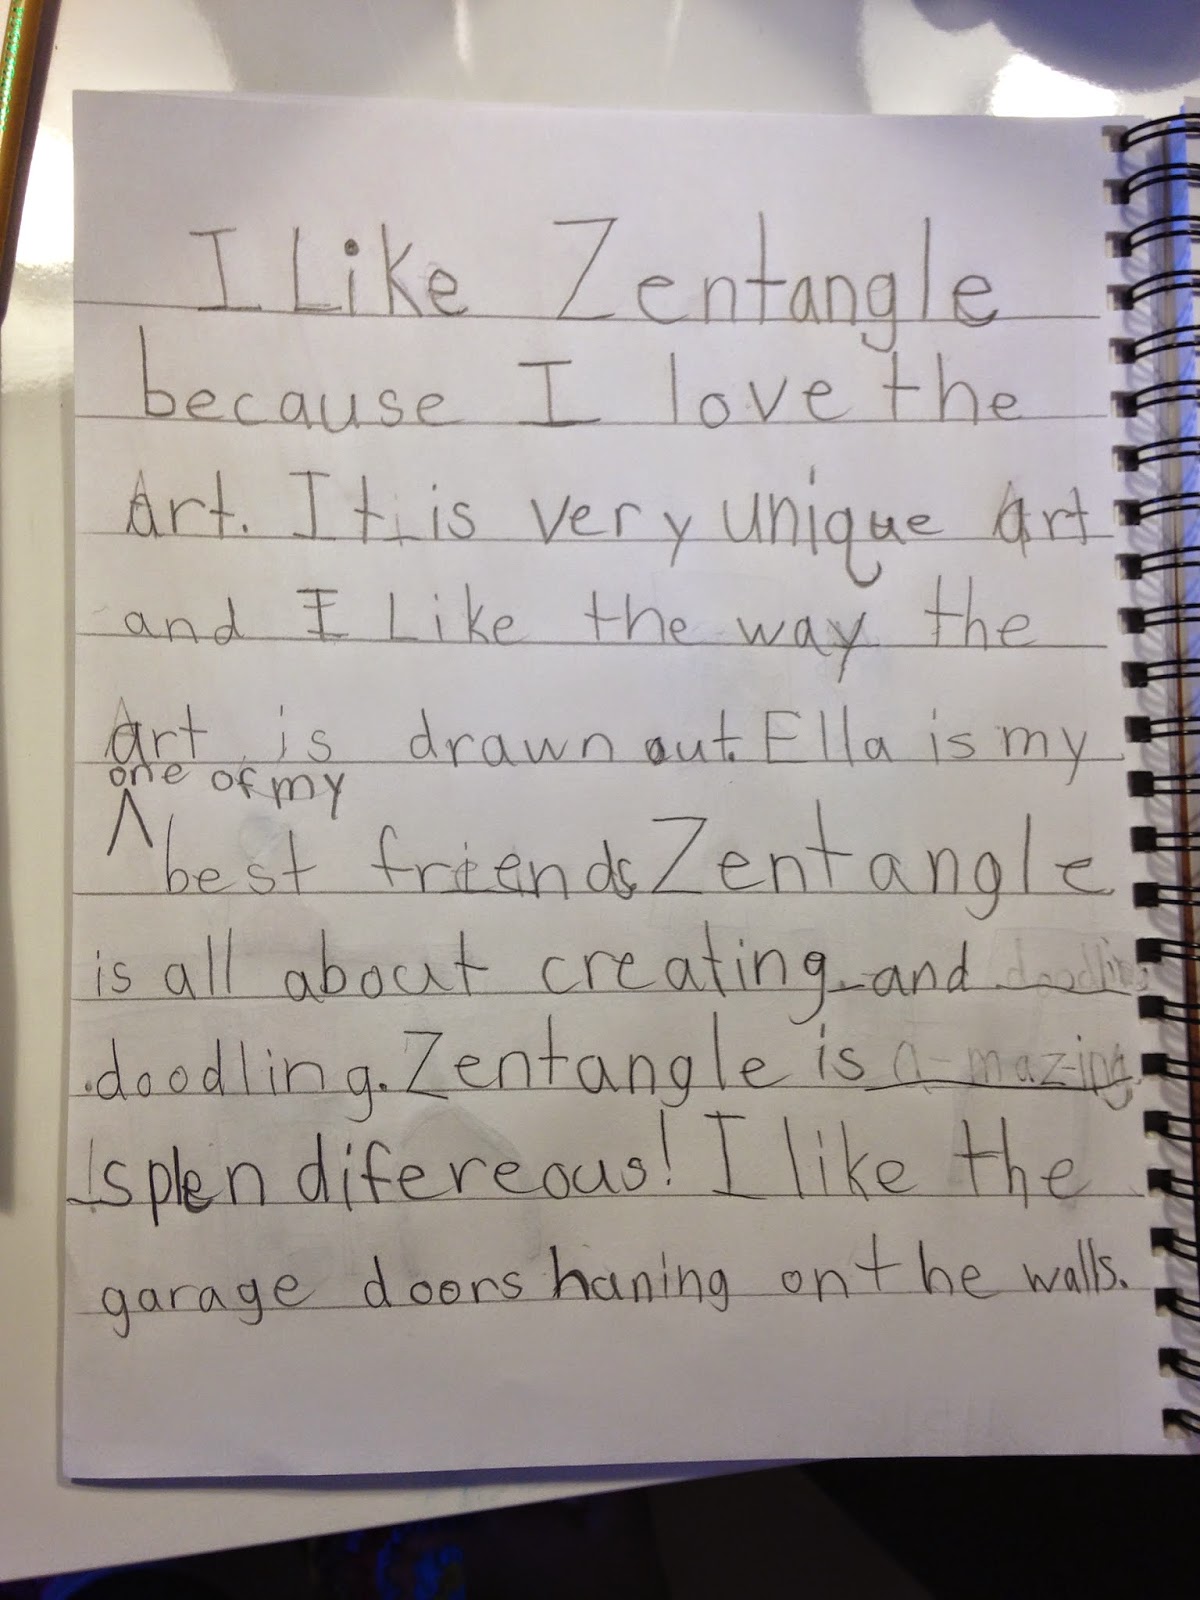 I Like Zentangle
because I love the
art. It is very unique art
and I Like the way the
art is drawn out. Ella is my
one of my
^ best friends Zentangle
is all about creating and doodling
doodling. Zentangle is a-mazing
splendifereous! I like the
garage doors haning on the walls.